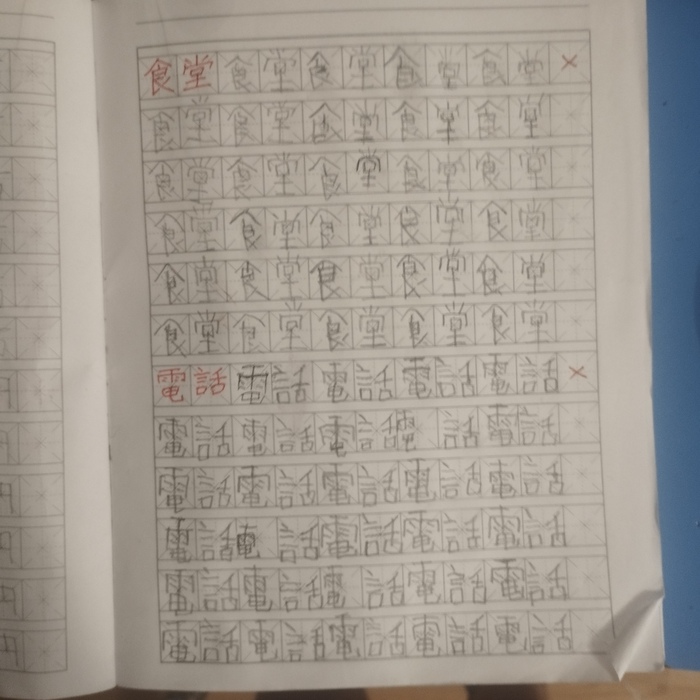 食堂食堂食堂食堂食堂×
食堂食堂食堂食堂食堂
食堂食堂食堂食堂食堂
食堂食堂食堂食堂食堂
食堂食堂食堂食堂食堂
食堂食堂食堂食堂食堂
電話電話電話電話電話×
電話電話電話電話電話
電話電話電話電話電話
電話電話電話電話電話
電話電話電話電話電話
電話電話電話電話電話